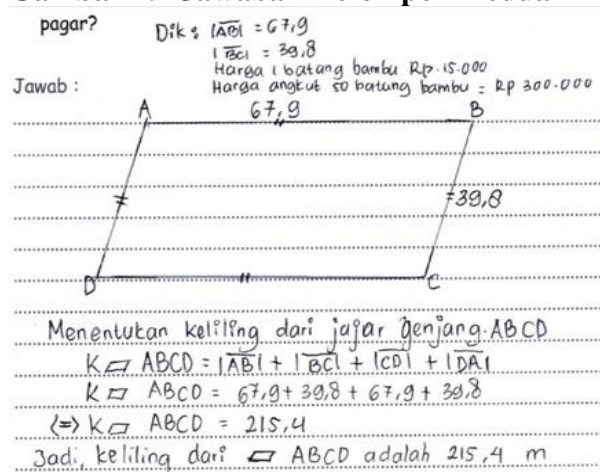 pagar?
Dik : |AB| = 67,9
|BC| = 39,8
Harga 1 batang bambu Rp. 15.000
Jawab :
Harga angkut 50 batang bambu = Rp 300.000
A
67,9
B
39,8
D
C
Menentukan keliling dari jajar genjang ABCD
K▱ ABCD = |AB| + |BC| + |CD| + |DA|
K▱ ABCD = 67,9 + 39,8 + 67,9 + 39,8
(=) K▱ ABCD = 215,4
Jadi, keliling dari ▱ ABCD adalah 215,4 m